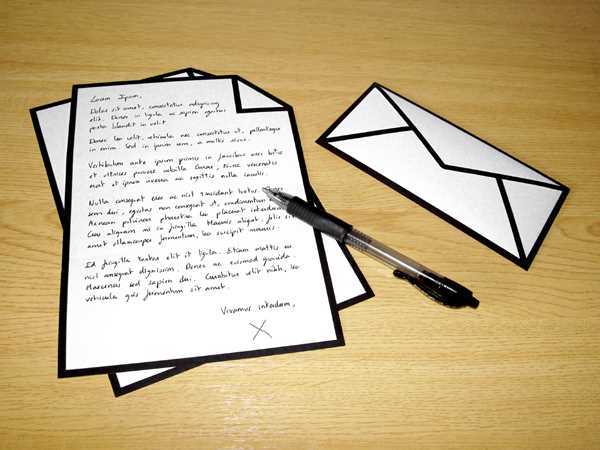 Lorem Ipsum,
Dolor sit amet, consectetur adipiscing
elit. Donec in ligula ac sapien egestas
porta blandit in velit.
Donec leo velit, vehicula nec consectetur et, pellentesque
in enim. Sed in ipsum sem, a mollis
Vestibulum ante ipsum primis in faucibus orci luctus
et ultrices posuere cubilia Curae; Nunc venenatis
erat et ipsum viverra ac sagittis nulla iaculis.
Nulla consequat eros ac nisl tincidunt tortor
sem dui, egestas non consequat at, condimentum
Aenean pulvinar pharetra leo placerat interdum.
Cras aliquam mi in fringilla mauris aliquet. felis sit
amet ullamcorper fermentum, leo suscipit mauris.
Id fringilla tortor elit et ligula. Etiam mattis ac
nisl consequat dignissim. Donec ac euismod gravida.
Maecenas sed sapien dui. Curabitur velit nibh, leo
vehicula quis fermentum sit amet.
Vivamus interdum,
X